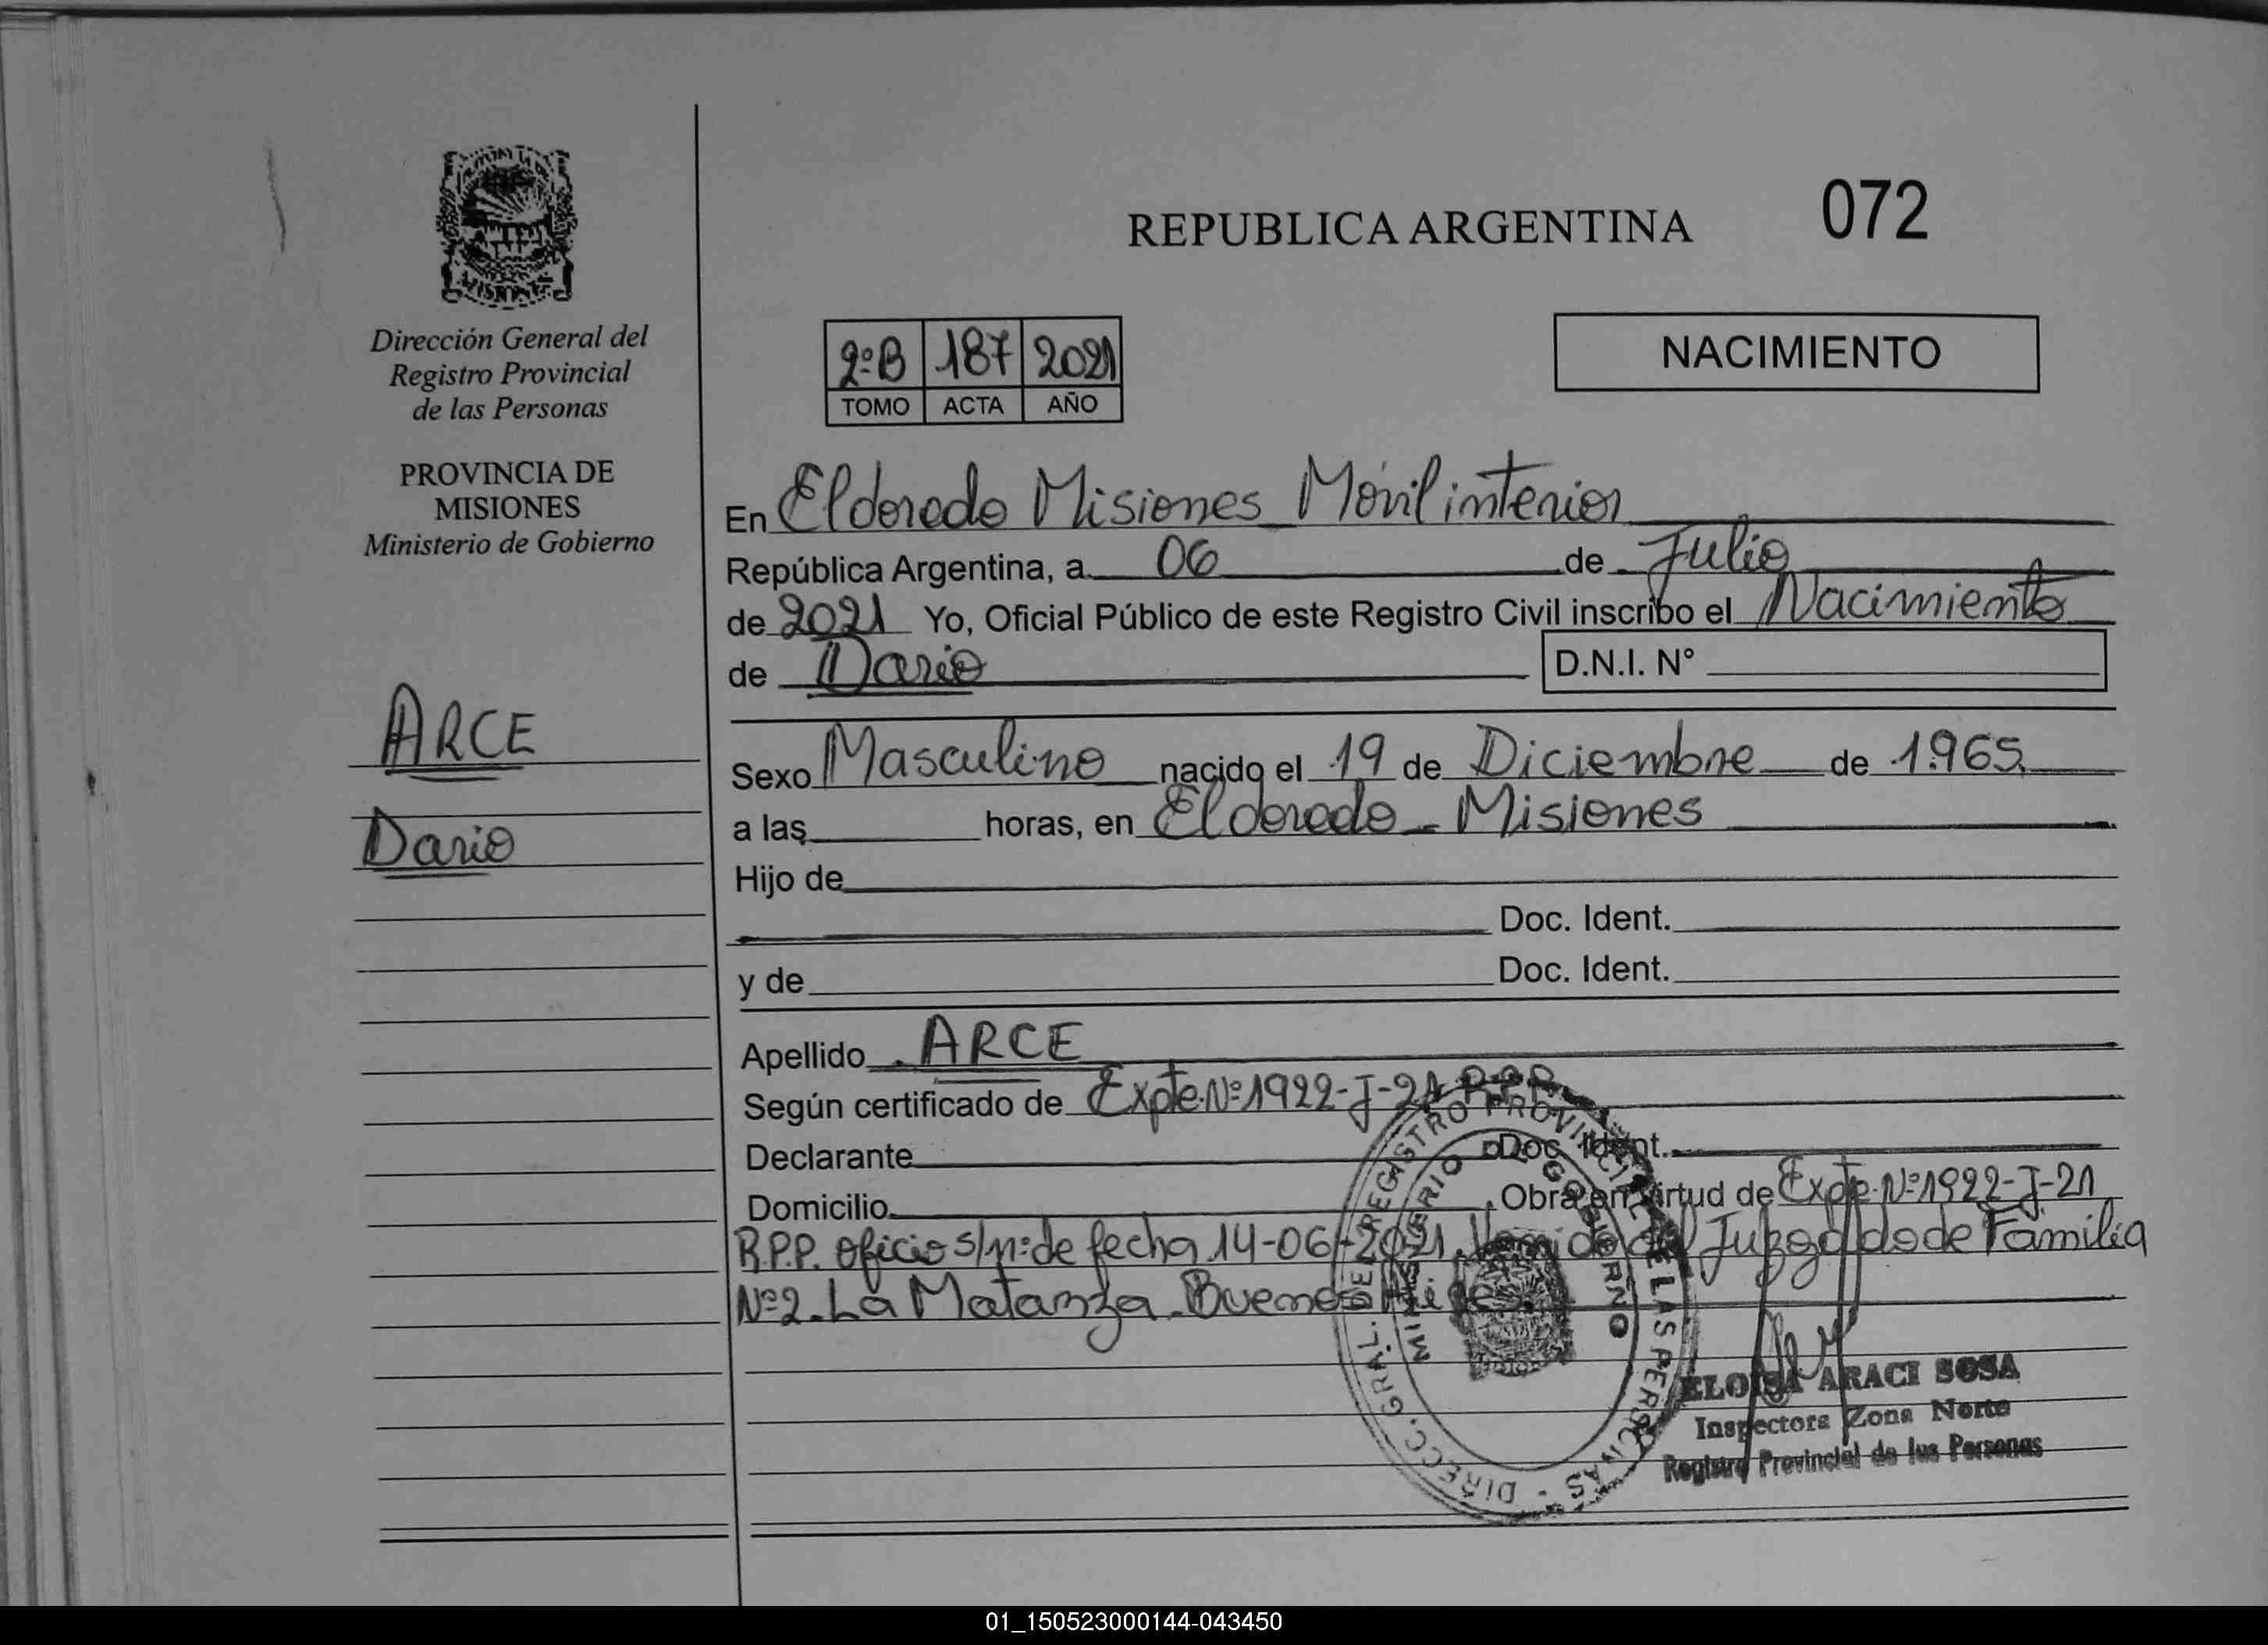 REPUBLICA ARGENTINA
072
Dirección General del
Registro Provincial
de las Personas
PROVINCIA DE
MISIONES
Ministerio de Gobierno
2º B 187 2021
TOMO ACTA AÑO
NACIMIENTO
En Eldorado Misiones Móvil interior
República Argentina, a 06 de Julio
de 2021 Yo, Oficial Público de este Registro Civil inscribo el Nacimiento
de Dario D.N.I. N°
ARCE
Dario
Sexo Masculino nacido el 19 de Diciembre de 1.965
a las horas, en Eldorado - Misiones
Hijo de
Doc. Ident.
y de Doc. Ident.
Apellido ARCE
Según certificado de Expte. Nº 1922-J-21 R.P.P.
Declarante Doc. Ident.
Domicilio Obra en virtud de Expte. Nº 1922-J-21
R.P.P. oficio s/nº de fecha 14-06-2021. Venido del Juzgado de Familia
Nº 2. La Matanza. Buenos Aires.
DIRECC. GRAL. DEL REGISTRO PROVINCIAL DE LAS PERSONAS
MINISTERIO DE GOBIERNO
ELOISA ARACI SOSA
Inspectora Zona Norte
Registro Provincial de las Personas
01_150523000144-043450